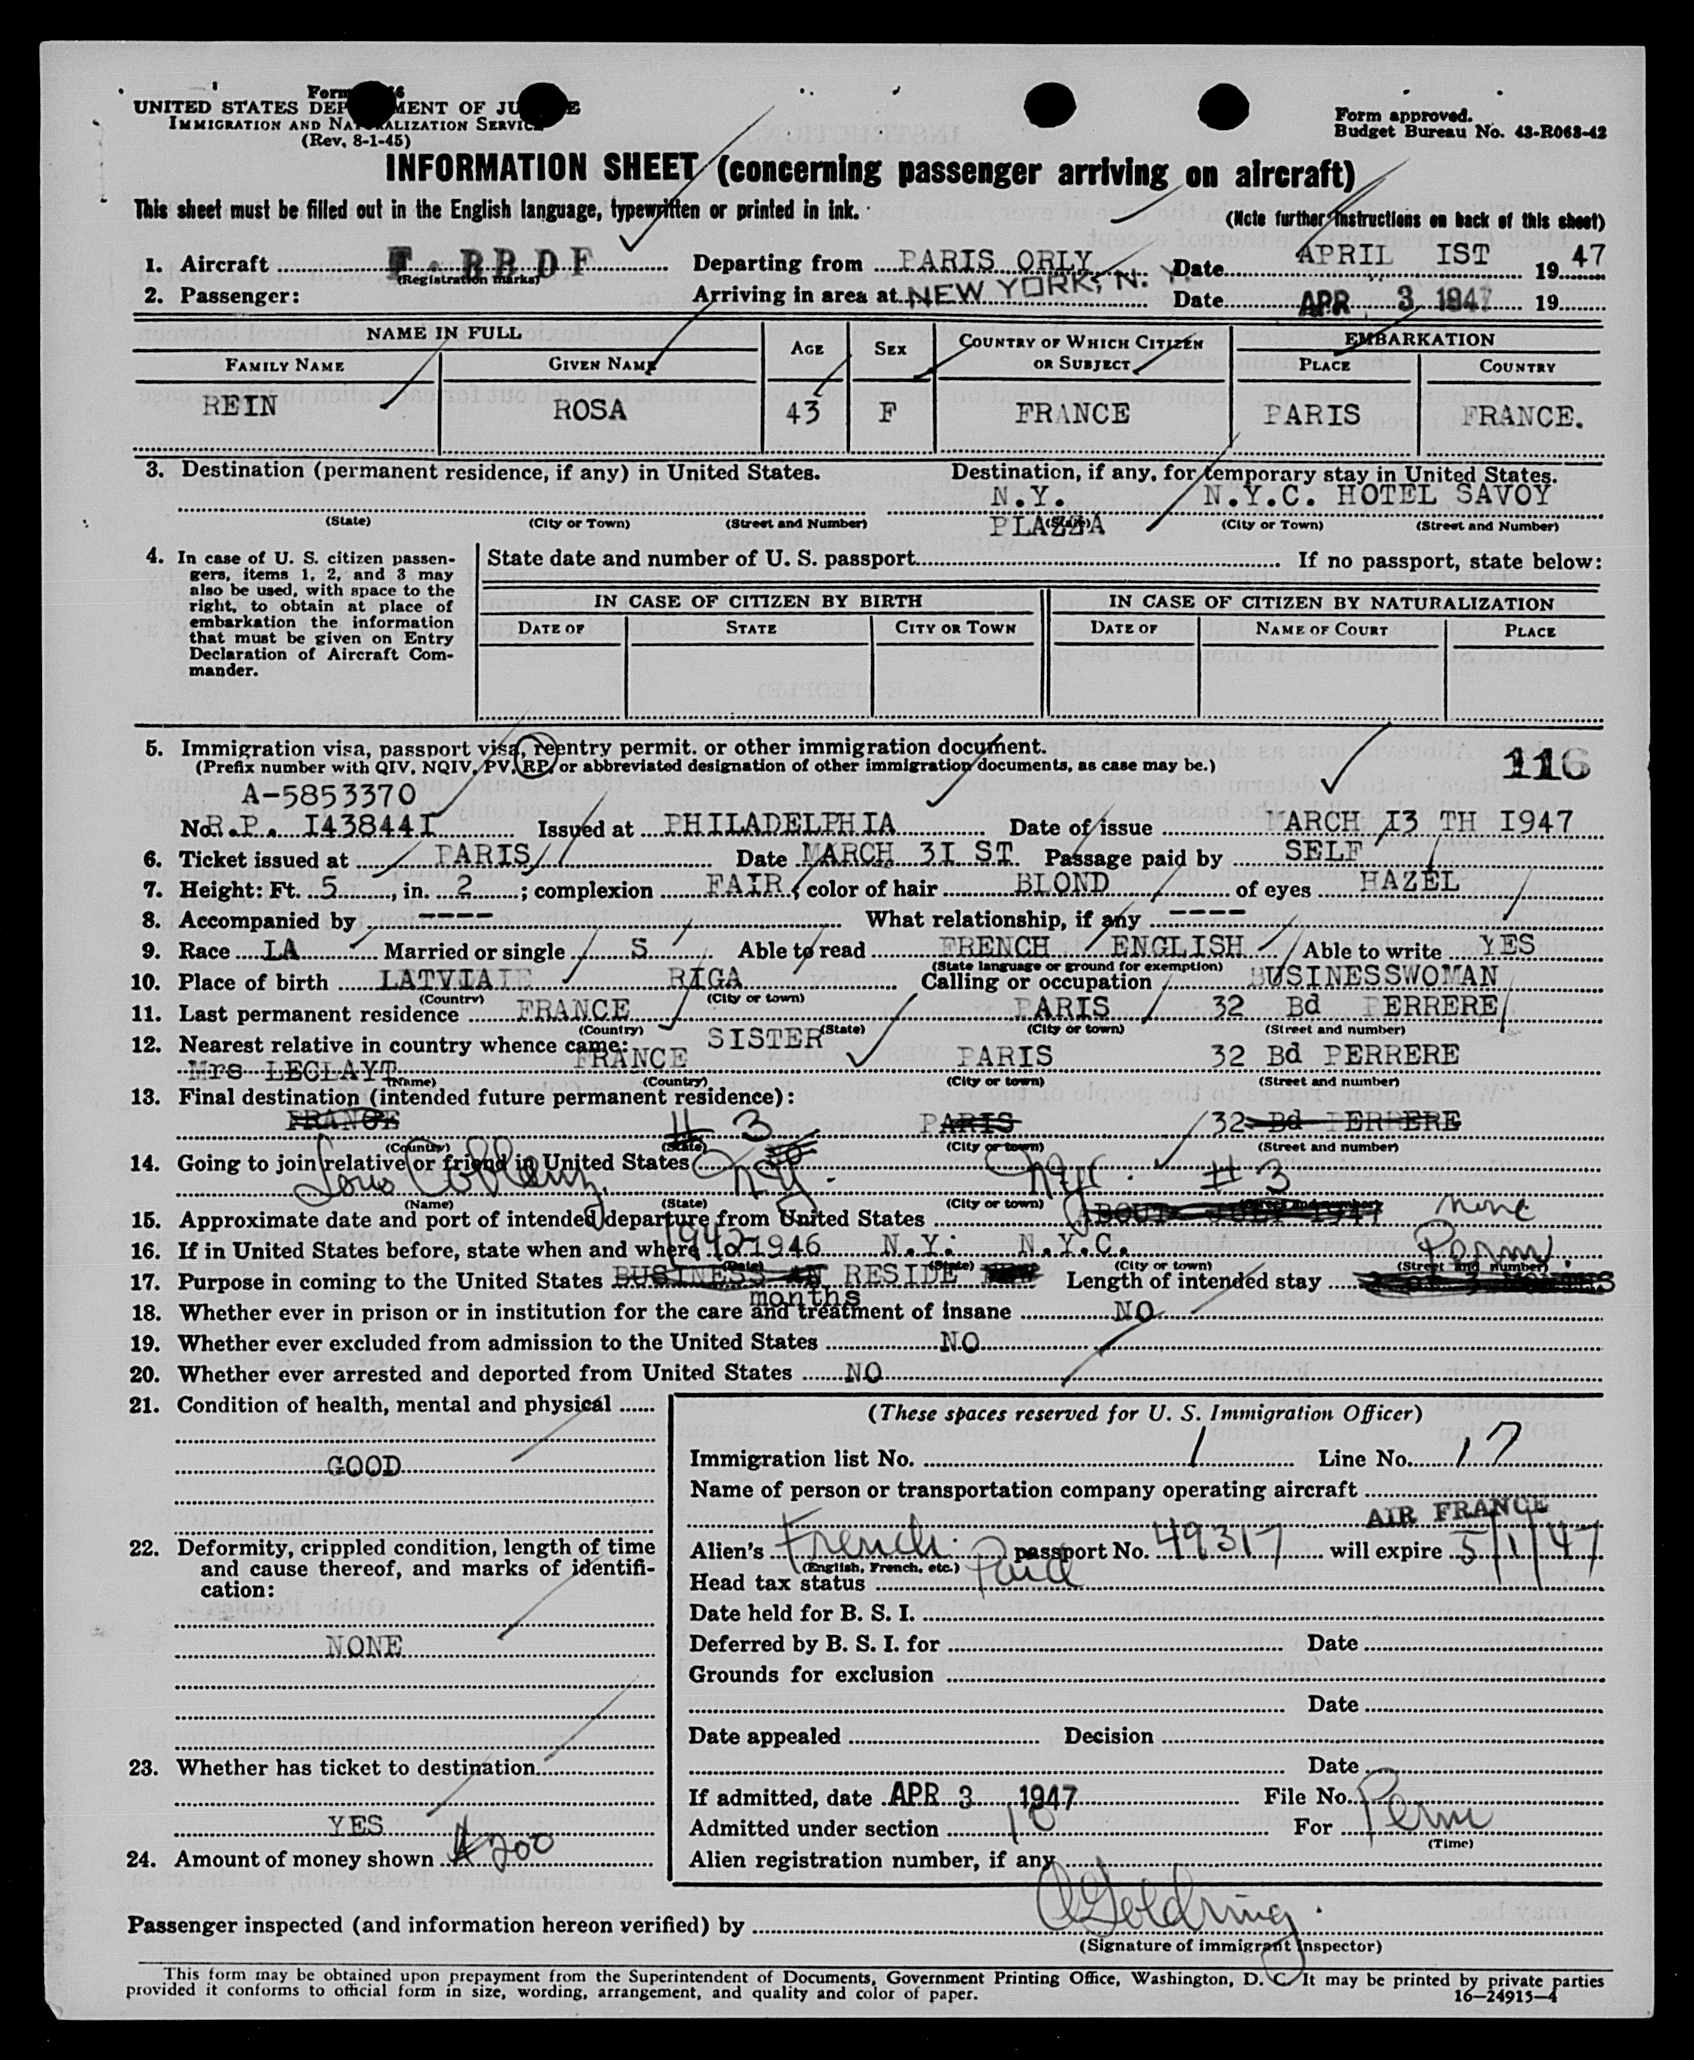 UNITED STATES DEPARTMENT OF JUSTICE
IMMIGRATION AND NATURALIZATION SERVICE
(Rev. 8-1-45)
Form approved.
Budget Bureau No. 43-R063-42
INFORMATION SHEET (concerning passenger arriving on aircraft)
This sheet must be filled out in the English language, typewritten or printed in ink.
(Note further instructions on back of this sheet)
1. Aircraft F. BBDF Departing from PARIS ORLY Date APRIL IST 1947
(Registration marks)
2. Passenger: Arriving in area at NEW YORK, N. Y. Date APR 3 1947 19
NAME IN FULL AGE SEX COUNTRY OF WHICH CITIZEN OR SUBJECT EMBARKATION
FAMILY NAME GIVEN NAME PLACE COUNTRY
REIN ROSA 43 F FRANCE PARIS FRANCE.
3. Destination (permanent residence, if any) in United States. Destination, if any, for temporary stay in United States.
N.Y. N.Y.C. HOTEL SAVOY
(State) (City or Town) (Street and Number) PLAZZA (State) (City or Town) (Street and Number)
4. In case of U. S. citizen passen-
gers, items 1, 2, and 3 may
also be used, with space to the
right, to obtain at place of
embarkation the information
that must be given on Entry
Declaration of Aircraft Com-
mander.
State date and number of U. S. passport If no passport, state below:
IN CASE OF CITIZEN BY BIRTH IN CASE OF CITIZEN BY NATURALIZATION
DATE OF STATE CITY OR TOWN DATE OF NAME OF COURT PLACE
5. Immigration visa, passport visa, reentry permit, or other immigration document.
(Prefix number with QIV, NQIV, PV, RP, or abbreviated designation of other immigration documents, as case may be.)
116
A-5853370
No. R.P. I43844I Issued at PHILADELPHIA Date of issue MARCH I3 TH I947
6. Ticket issued at PARIS Date MARCH 3I ST. Passage paid by SELF
7. Height: Ft. 5, in. 2; complexion FAIR; color of hair BLOND of eyes HAZEL
8. Accompanied by ---- What relationship, if any ----
9. Race LA Married or single S Able to read FRENCH ENGLISH Able to write YES
(State language or ground for exemption)
10. Place of birth LATVIAIE RIGA Calling or occupation BUSINESSWOMAN
(Country) (City or town)
11. Last permanent residence FRANCE PARIS 32 Bd PERRERE
(Country) (State) (City or town) (Street and number)
12. Nearest relative in country whence came: SISTER
Mrs LECLAYT FRANCE PARIS 32 Bd PERRERE
(Name) (Country) (City or town) (Street and number)
13. Final destination (intended future permanent residence):
FRANCE # 3 PARIS 32 Bd PERRERE
(Country) (State) (City or town) (Street and number)
14. Going to join relative or friend in United States
NY. NYC. # 3
(Name) (State) (City or town) (Street and number)
15. Approximate date and port of intended departure from United States ABOUT JULY 1947 none
16. If in United States before, state when and where 1942 to 1946 N.Y. N.Y.C.
(Date) (State) (City or town) (Street and number)
Perm
17. Purpose in coming to the United States BUSINESS AN RESIDE Length of intended stay 2 or 3 MONTHS
months
18. Whether ever in prison or in institution for the care and treatment of insane NO
19. Whether ever excluded from admission to the United States NO
20. Whether ever arrested and deported from United States NO
21. Condition of health, mental and physical
GOOD
22. Deformity, crippled condition, length of time
and cause thereof, and marks of identifi-
cation:
NONE
23. Whether has ticket to destination
YES
24. Amount of money shown $200
(These spaces reserved for U. S. Immigration Officer)
Immigration list No. 1 Line No. 17
Name of person or transportation company operating aircraft
AIR FRANCE
Alien's French passport No. 49317 will expire 5/1/47
(English, French, etc.)
Head tax status Paid
Date held for B. S. I.
Deferred by B. S. I. for Date
Grounds for exclusion
Date
Date appealed Decision
Date
If admitted, date APR 3 1947 File No.
Admitted under section 10 For Perm
(Time)
Alien registration number, if any
Passenger inspected (and information hereon verified) by Goldring
(Signature of immigrant inspector)
This form may be obtained upon prepayment from the Superintendent of Documents, Government Printing Office, Washington, D. C. It may be printed by private parties
provided it conforms to official form in size, wording, arrangement, and quality and color of paper.
16—24915-4